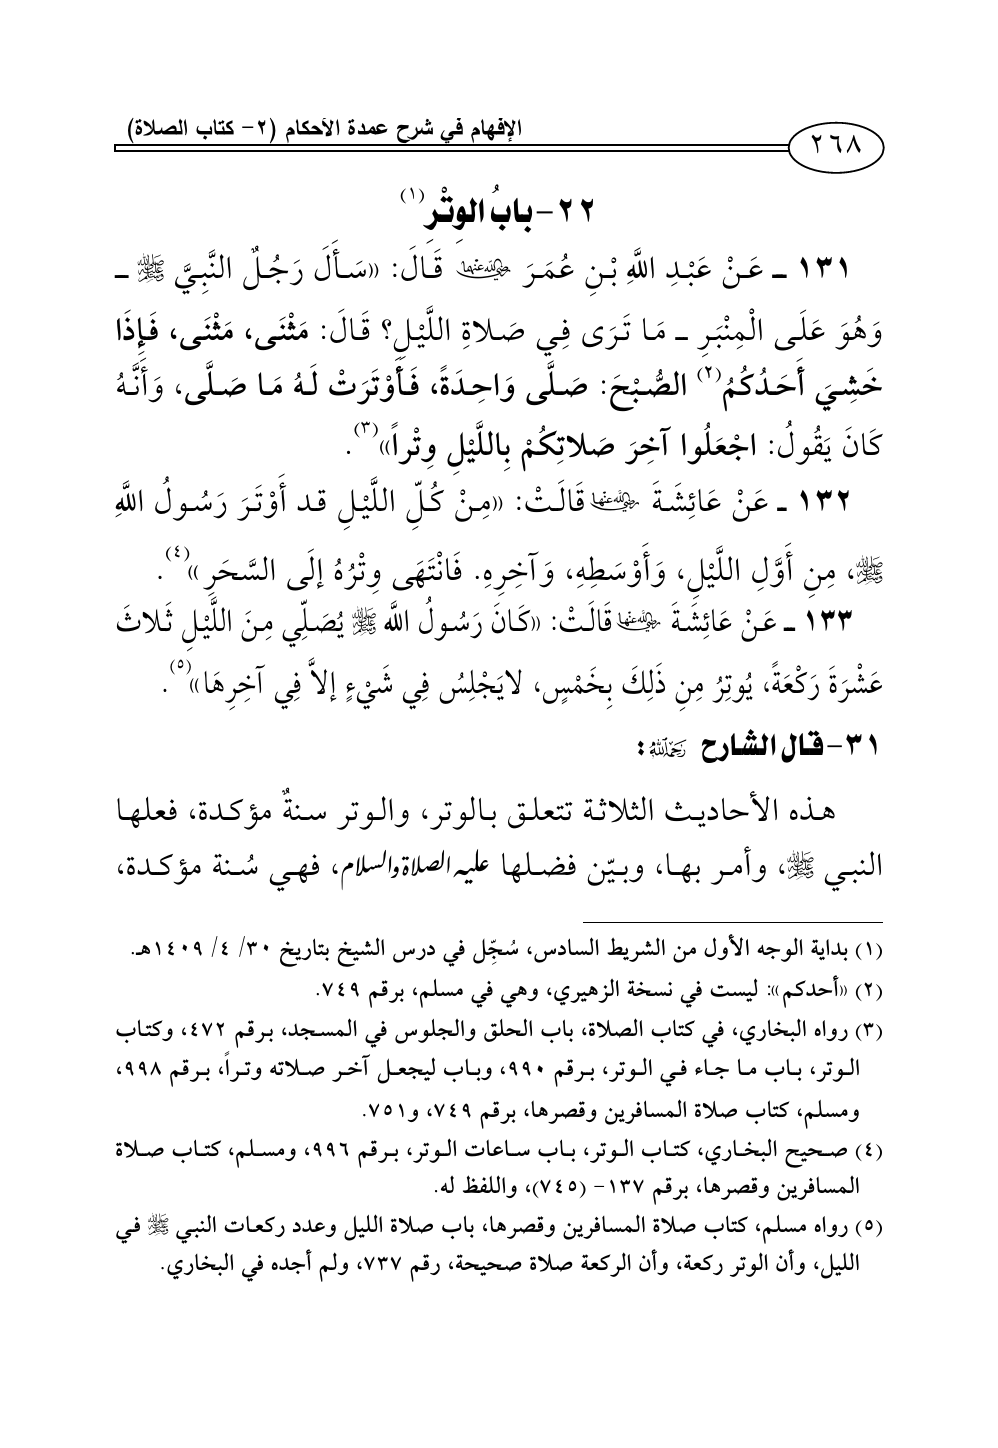 الإفهام في شرح عمدة الأحكام (٢- كتاب الصلاة)
٢٦٨
٢٢-بابُ الوِتْرِ (١)
١٣١ ـ عَنْ عَبْدِ اللَّهِ بْنِ عُمَرَ رضي الله عنهما قَالَ: «سَأَلَ رَجُلٌ النَّبِيَّ ﷺ ـ
وَهُوَ عَلَى الْمِنْبَرِ ـ مَا تَرَى فِي صَلاةِ اللَّيْلِ؟ قَالَ: مَثْنَى، مَثْنَى، فَإِذَا
خَشِيَ أَحَدُكُمُ(٢) الصُّبْحَ: صَلَّى وَاحِدَةً، فَأَوْتَرَتْ لَهُ مَا صَلَّى، وَأَنَّهُ
كَانَ يَقُولُ: اجْعَلُوا آخِرَ صَلاتِكُمْ بِاللَّيْلِ وِتْراً»(٣).
١٣٢ ـ عَنْ عَائِشَةَ رضي الله عنها قَالَتْ: «مِنْ كُلِّ اللَّيْلِ قد أَوْتَرَ رَسُولُ اللَّهِ
ﷺ، مِنِ أَوَّلِ اللَّيْلِ، وَأَوْسَطِهِ، وَآخِرِهِ. فَانْتَهَى وِتْرُهُ إلَى السَّحَرِ»(٤).
١٣٣ ـ عَنْ عَائِشَةَ رضي الله عنها قَالَتْ: «كَانَ رَسُولُ اللَّه ﷺ يُصَلِّي مِنَ اللَّيْلِ ثَلاثَ
عَشْرَةَ رَكْعَةً، يُوتِرُ مِنِ ذَلِكَ بِخَمْسٍ، لايَجْلِسُ فِي شَيْءٍ إلاَّ فِي آخِرِهَا»(٥).
٣١-قال الشارح رحمه الله:
هذه الأحاديث الثلاثة تتعلق بالوتر، والوتر سنةٌ مؤكدة، فعلها
النبي ﷺ، وأمر بها، وبيّن فضلها عليه الصلاة والسلام، فهي سُنة مؤكدة،
(١) بداية الوجه الأول من الشريط السادس، سُجِّل في درس الشيخ بتاريخ ٣٠/ ٤/ ١٤٠٩هـ.
(٢) «أحدكم»: ليست في نسخة الزهيري، وهي في مسلم، برقم ٧٤٩.
(٣) رواه البخاري، في كتاب الصلاة، باب الحلق والجلوس في المسجد، برقم ٤٧٢، وكتاب
الوتر، باب ما جاء في الوتر، برقم ٩٩٠، وباب ليجعل آخر صلاته وتراً، برقم ٩٩٨،
ومسلم، كتاب صلاة المسافرين وقصرها، برقم ٧٤٩، و٧٥١.
(٤) صحيح البخاري، كتاب الوتر، باب ساعات الوتر، برقم ٩٩٦، ومسلم، كتاب صلاة
المسافرين وقصرها، برقم ١٣٧- (٧٤٥)، واللفظ له.
(٥) رواه مسلم، كتاب صلاة المسافرين وقصرها، باب صلاة الليل وعدد ركعات النبي ﷺ في
الليل، وأن الوتر ركعة، وأن الركعة صلاة صحيحة، رقم ٧٣٧، ولم أجده في البخاري.